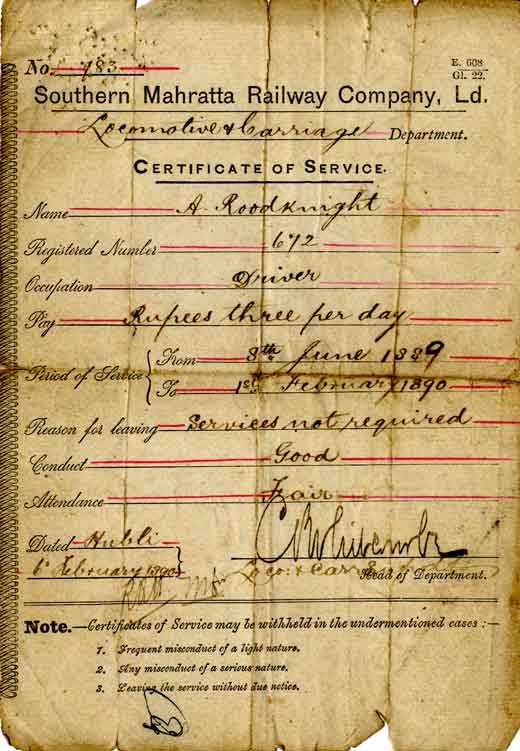 No. 783
E. 608
Gl. 22.
Southern Mahratta Railway Company, Ld.
Locomotive & Carriage Department.
CERTIFICATE OF SERVICE.
Name A. Roodknight
Registered Number 672
Occupation Driver
Pay Rupees three per day
Period of Service { From 8th June 1889
To 1st February 1890
Reason for leaving Services not required
Conduct Good
Attendance Fair
Dated Hubli
February 1890
Loco: & Carr: Head of Department.
Note.—Certificates of Service may be withheld in the undermentioned cases :—
1. Frequent misconduct of a light nature.
2. Any misconduct of a serious nature.
3. Leaving the service without due notice.